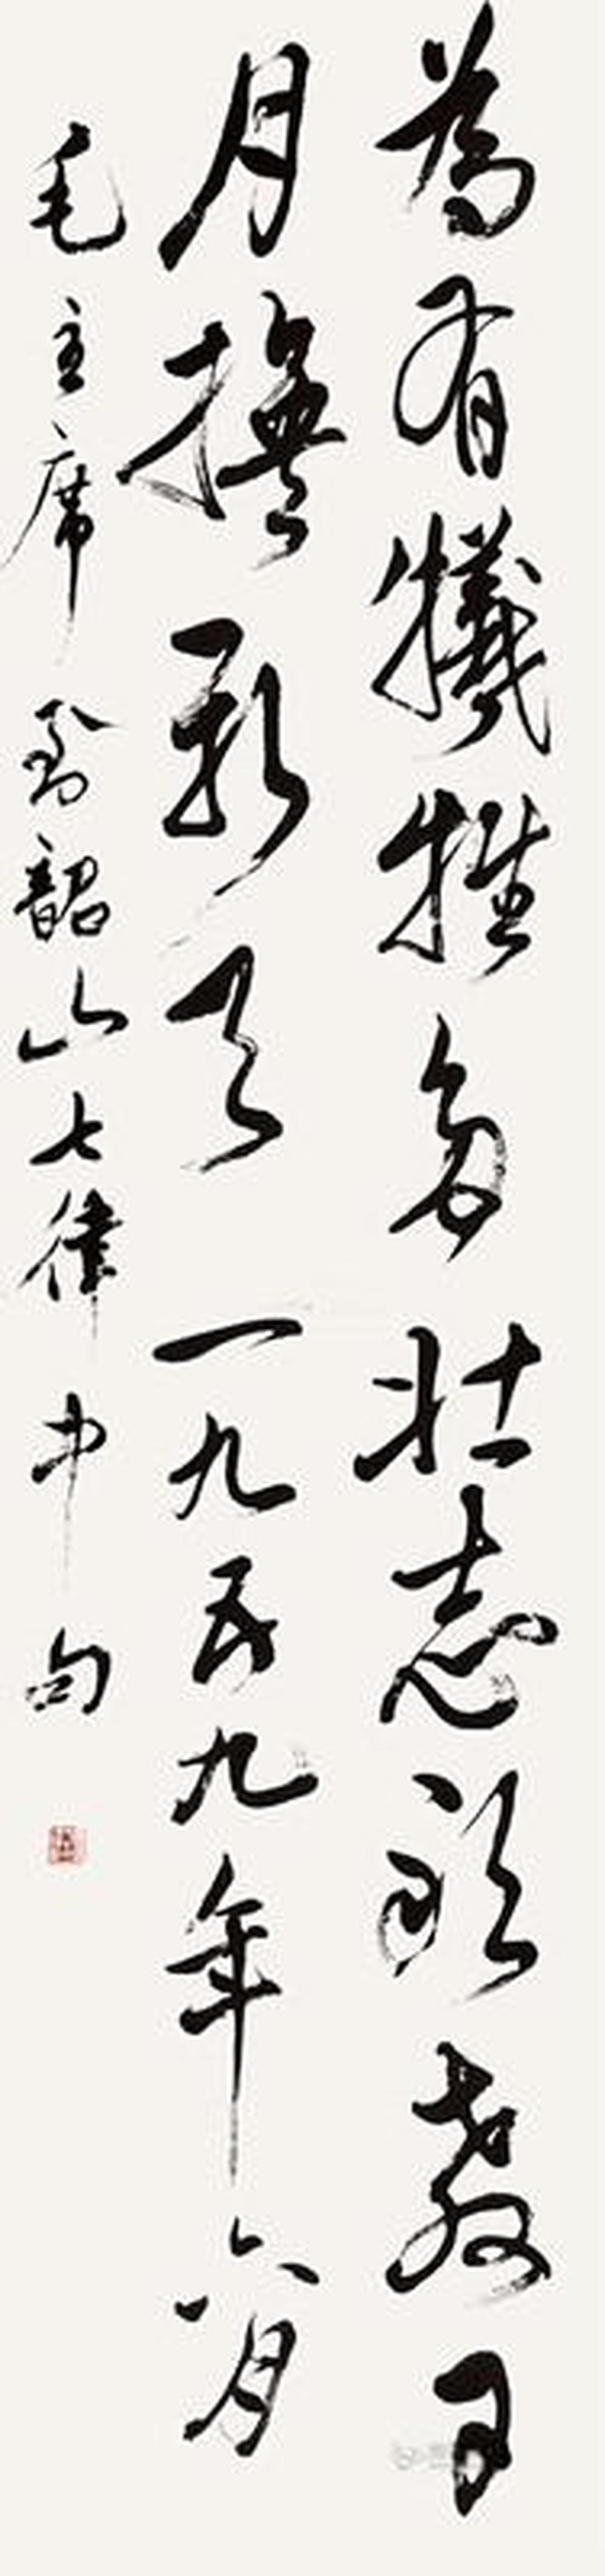 為有犧牲多壯志敢教日
月換新天 一九五九年六月
毛主席到韶山七律中句